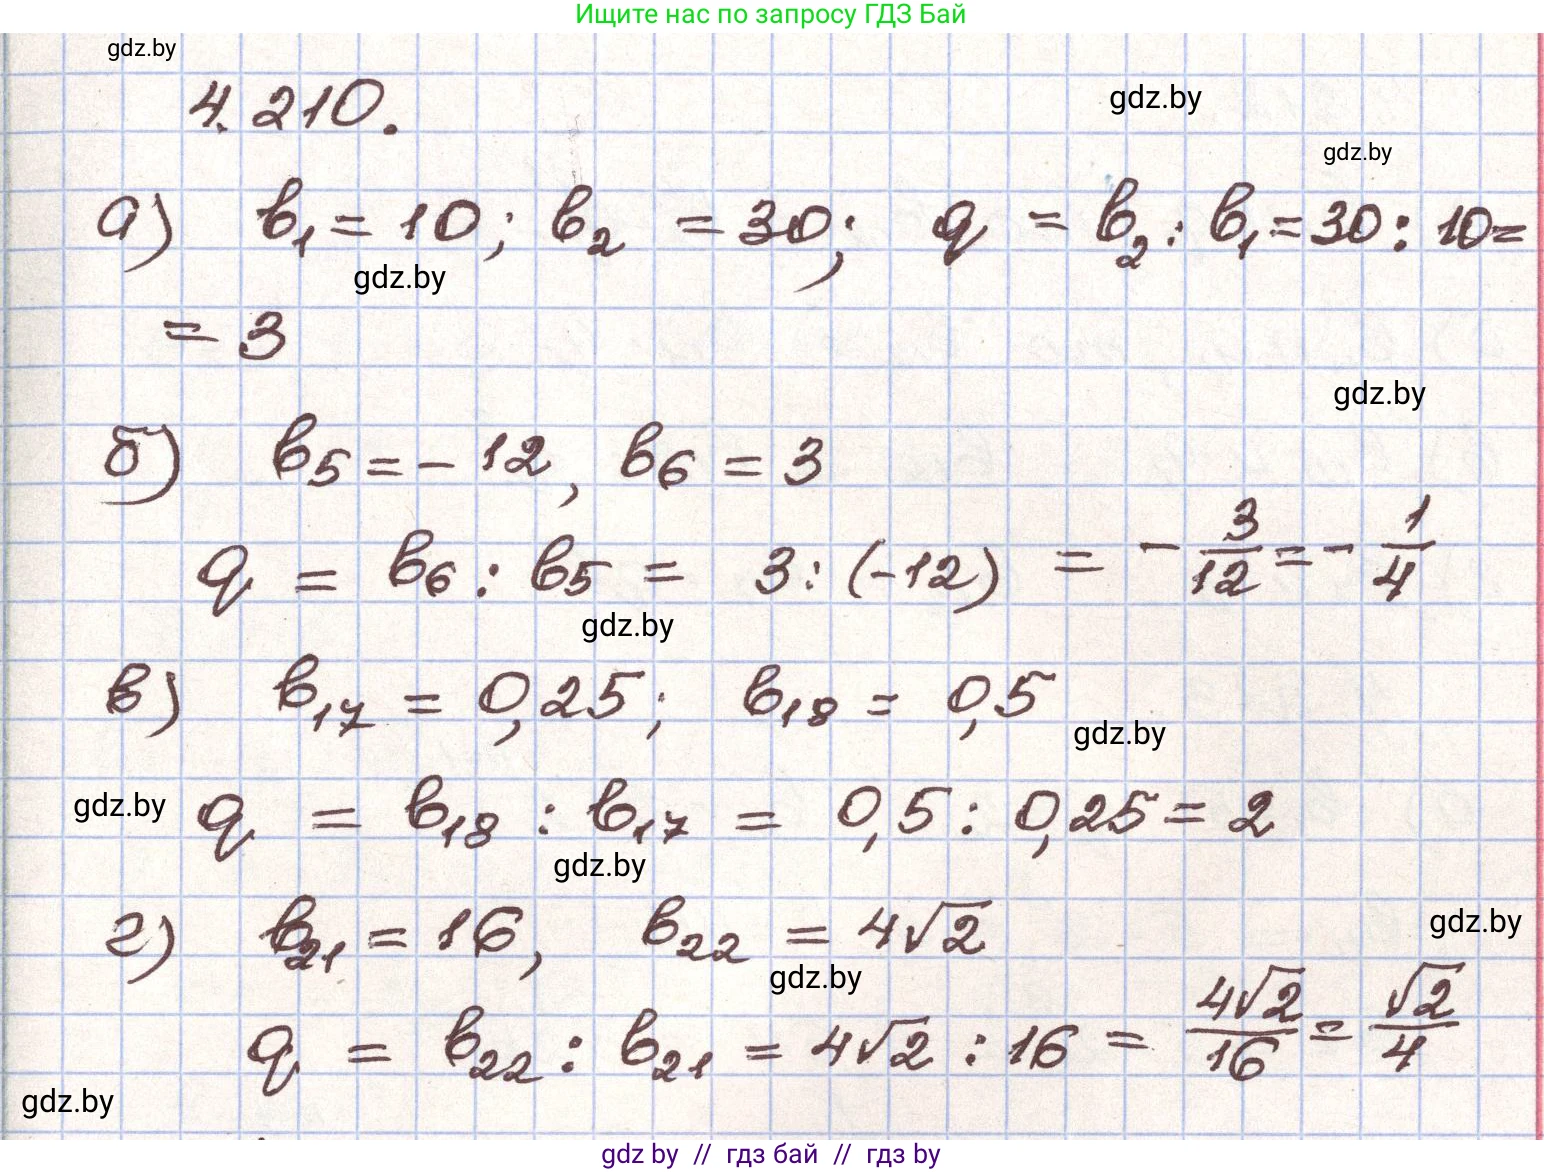 Ищите нас по запросу ГДЗ Бай
gdz.by
4.210.
gdz.by
gdz.by
а) b₁ = 10; b₂ = 30; q = b₂ : b₁ = 30 : 10 =
gdz.by
= 3
gdz.by
б) b₅ = - 12, b₆ = 3
q = b₆ : b₅ = 3 : (-12) = - 3/12 = - 1/4
gdz.by
в) b₁₇ = 0,25; b₁₈ = 0,5
gdz.by
gdz.by
q = b₁₈ : b₁₇ = 0,5 : 0,25 = 2
gdz.by
г) b₂₁ = 16, b₂₂ = 4√2
gdz.by
gdz.by
q = b₂₂ : b₂₁ = 4√2 : 16 = 4√2/16 = √2/4
gdz.by
gdz by // гдз бай // гдз by